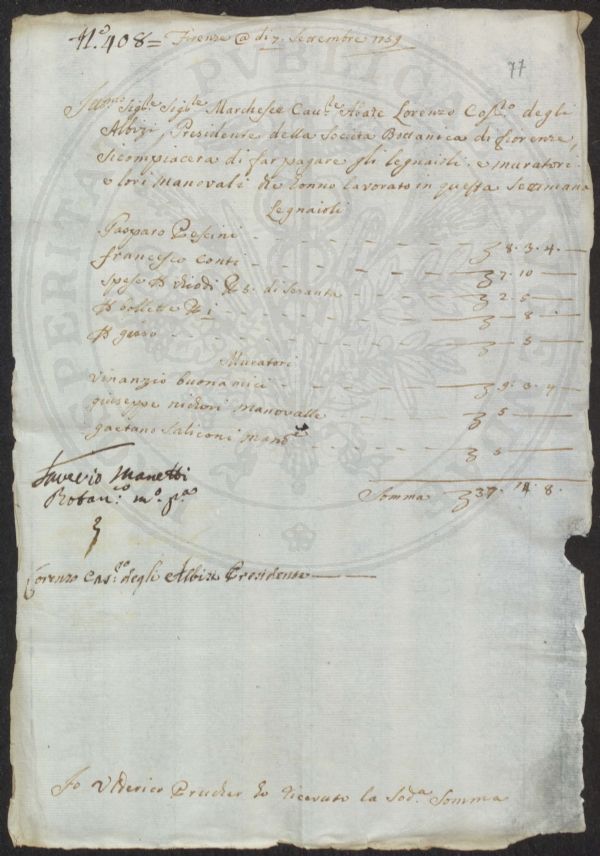 N.º 408 = Firenze @ dì 7. Settembre 1759
77
Ill.mo Sig.re Sig.re Marchese Cau.re Abate Lorenzo Cos.mo degli
Albizi, Presidente della Società Bottanica di fiorenze,
Si compiacerà di far pagare gli legnaioli, e muratori
e lori Manovali che honno lavorato in questa Settimana
Legnaioli
Gasparo Pescini - - - - - - 8. 3. 4.
francesco Conti - - - - - - 7. 10
Spese chiodi 5. di Sesanta - - - 2. 5
bollette 1 - - - - - 8
gesso - - - - - 5
Muratori
Vinanzio buonamici - - - - 9. 3. 4
giuseppe nichori manovalle - - - 5
gaetano Saliconi mano.le - - - 5
Saverio Manetti
Botan.co m.o p.a
Somma 37. 14. 8.
Lorenzo Cas.po degli Albizi Presidente
Io Vlderico Prucher ho riceuuto la Sod.a Somma